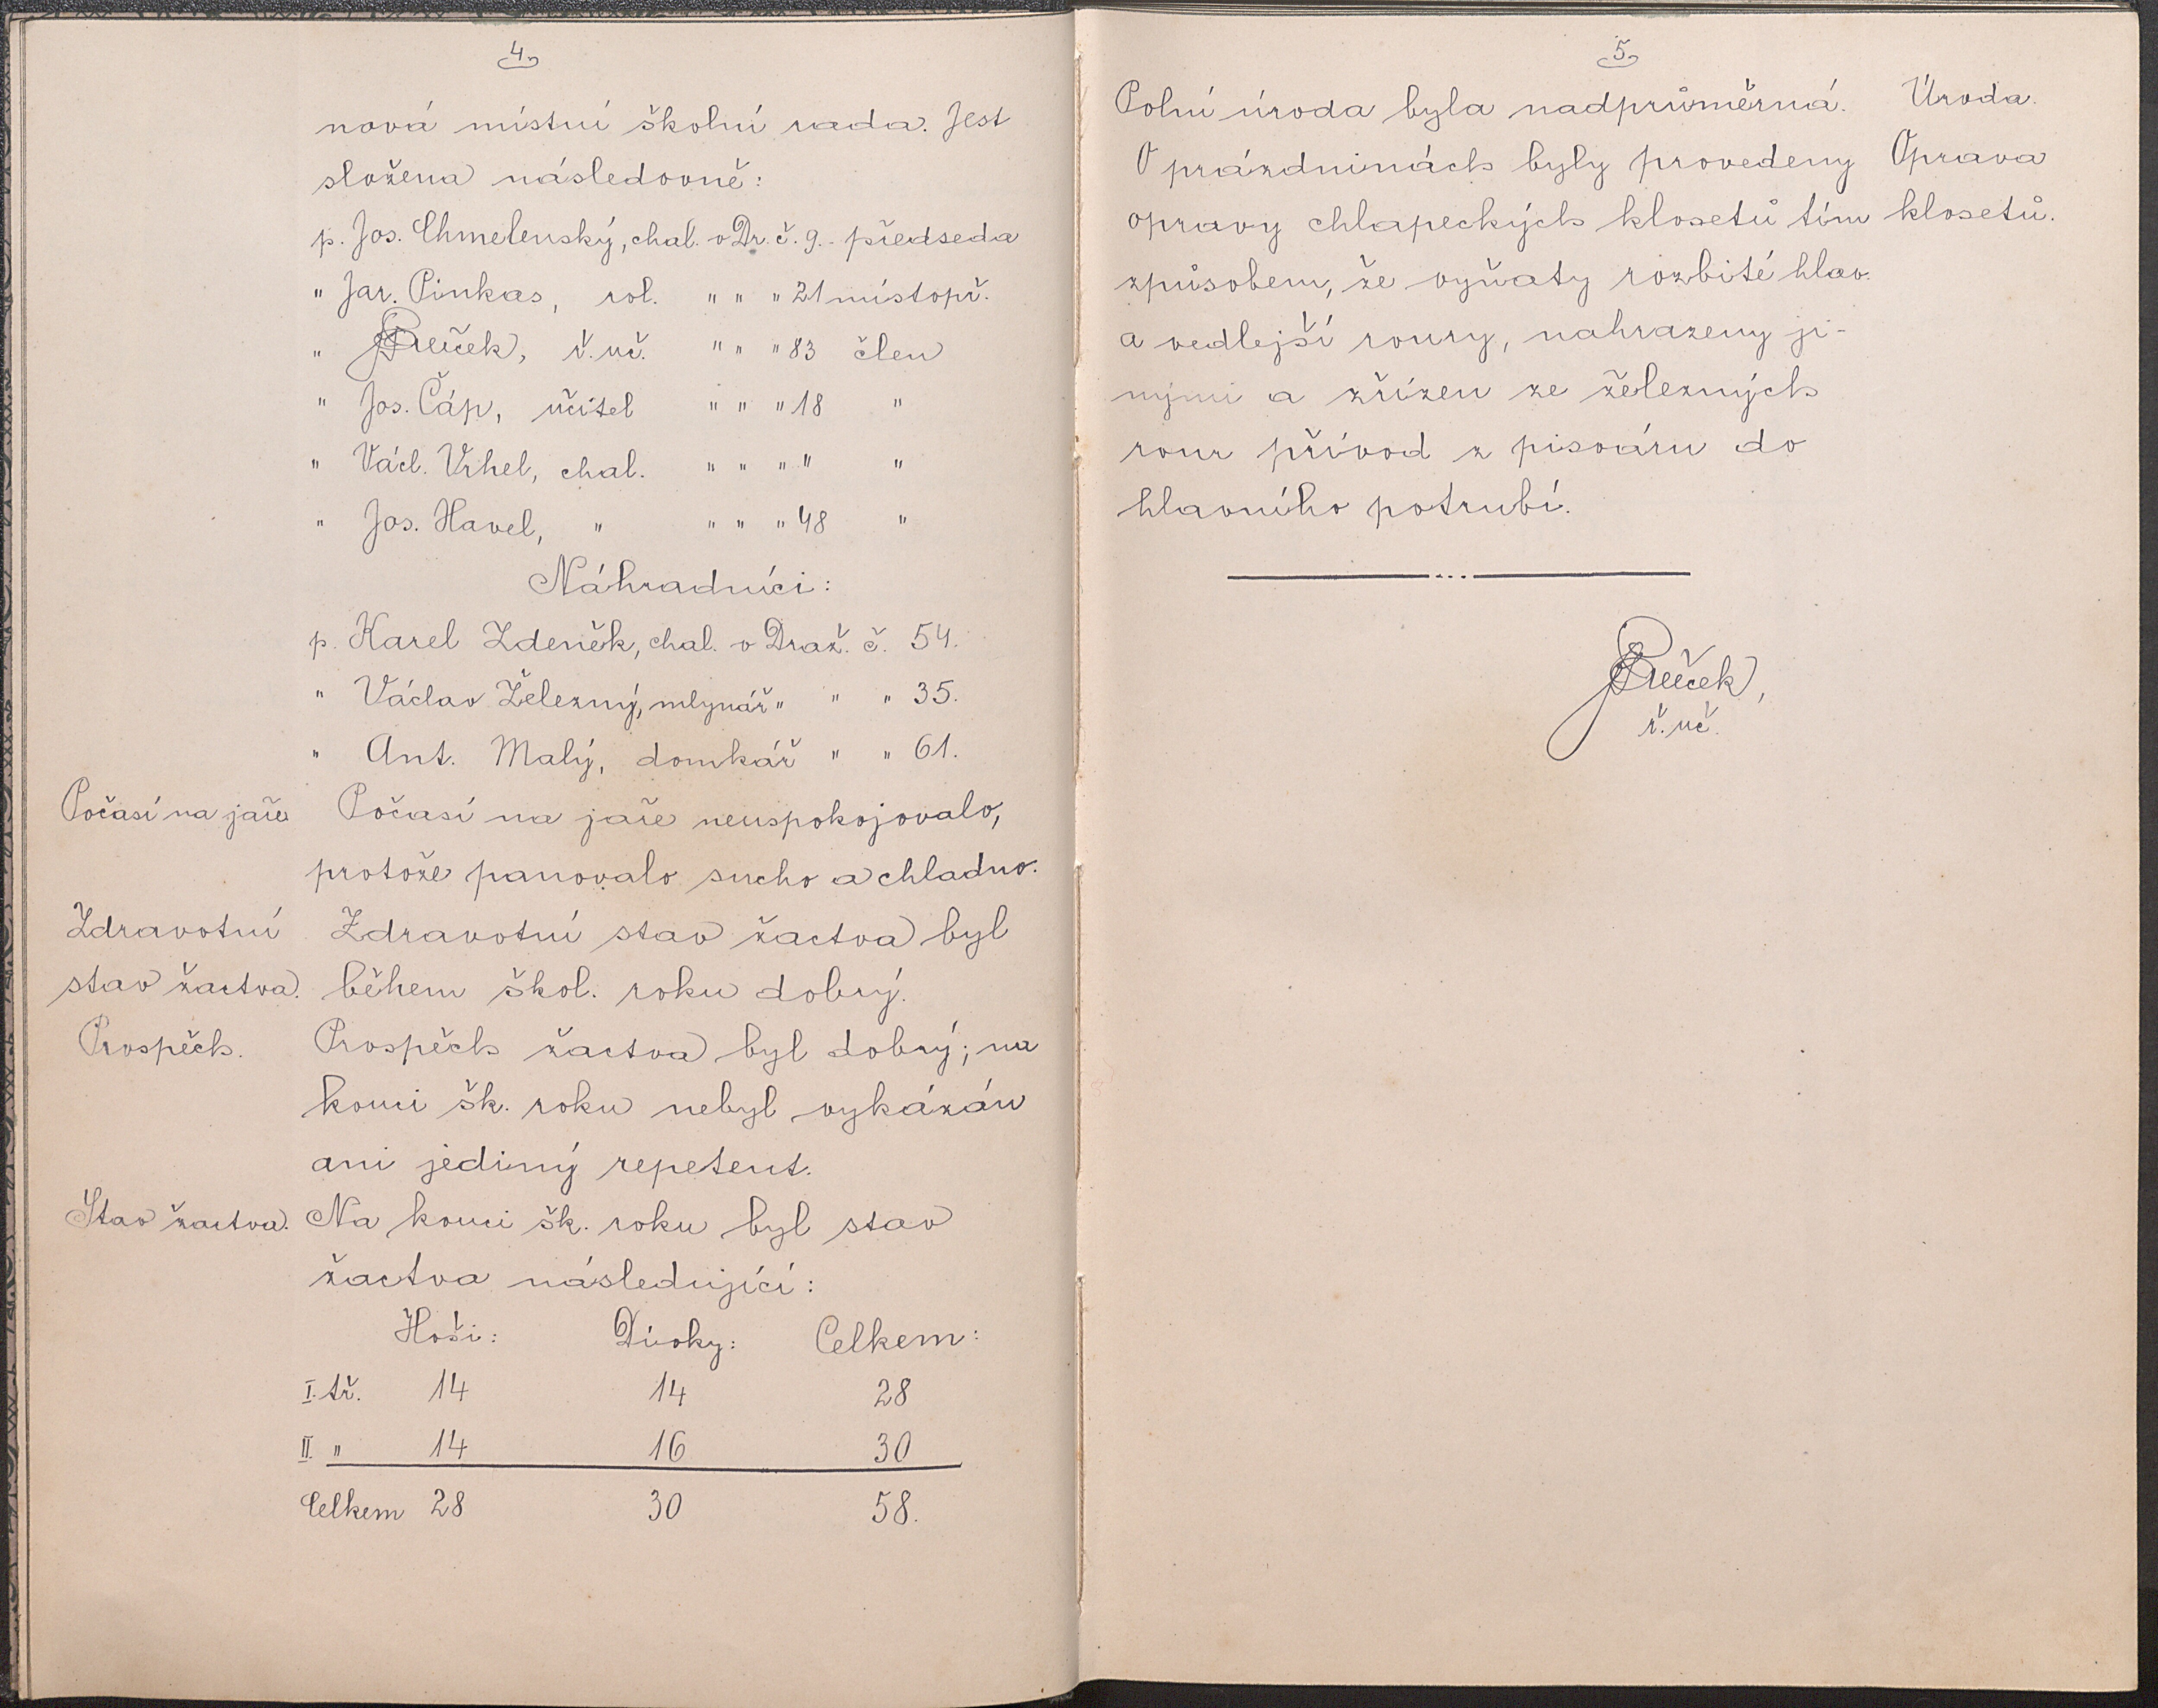 4.
nová místní školní rada. Jest
složena následovně:
p. Jos. Chmelenský, chal. v Dr. č. 9. - předseda
" Jar. Pinkas, rol. " " " 21 místopř.
" ř. uč. " " " 83 člen
" Jos. Čáp, učitel " " " 18 "
" Václ. Vrhel, chal. " " " " "
" Jos. Havel, " " " " 48 "
Náhradníci:
p. Karel Zdeněk, chal. v Draž. č. 54.
" Václav Železný, mlynář " " " 35.
" Ant. Malý, domkář " " 61.
Počasí na jaře Počasí na jaře neuspokojovalo,
protože panovalo sucho a chladno.
Zdravotní Zdravotní stav žactva byl
stav žactva. během škol. roku dobrý.
Prospěch. Prospěch žactva byl dobrý; na
konci šk. roku nebyl vykázán
ani jediný repetent.
Stav žactva. Na konci šk. roku byl stav
žactva následující:
Hoši: Dívky: Celkem:
I. tř. 14 14 28
II. " 14 16 30
Celkem 28 30 58.
5.
Polní úroda byla nadprůměrná. Úroda.
O prázdninách byly provedeny Oprava
opravy chlapeckých klosetů tím klosetů.
způsobem, že vyňaty rozbité hlav.
a vedlejší roury, nahrazeny ji-
nými a zřízen ze železných
rour přívod z pisoáru do
hlavního potrubí.
ř. uč.